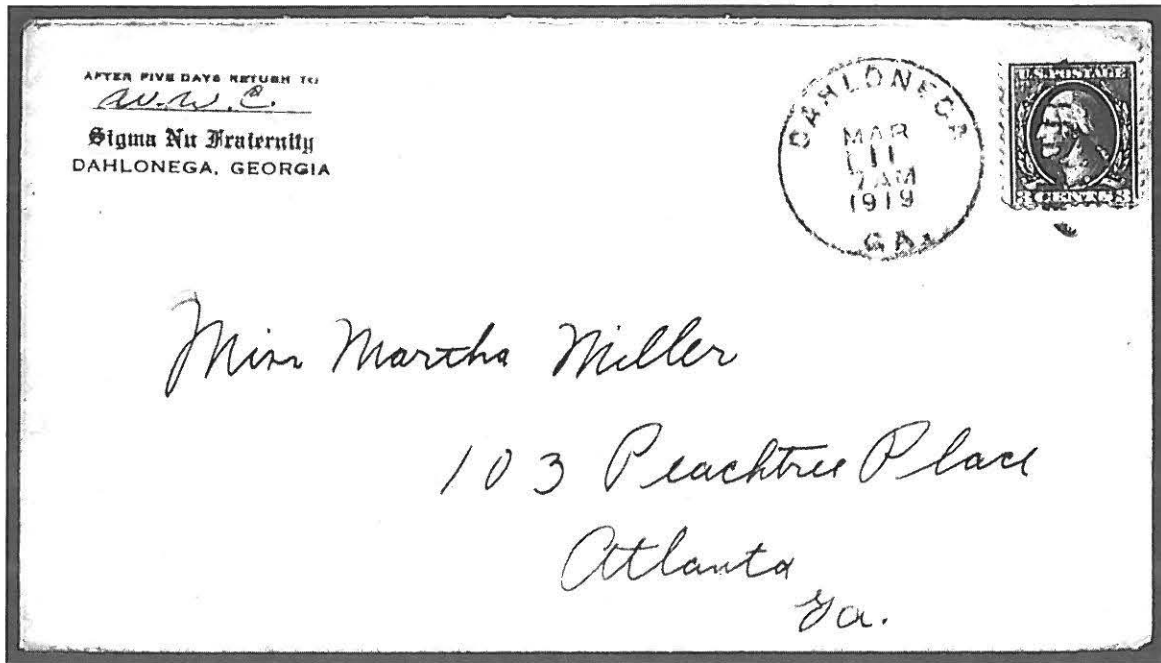 AFTER FIVE DAYS RETURN TO
W. W. C.
Sigma Nu Fraternity
DAHLONEGA, GEORGIA
DAHLONEGA
MAR
11
7AM
1919
GA.
U.S. POSTAGE
3 CENTS 3
Miss Martha Miller
103 Peachtree Place
Atlanta
Ga.